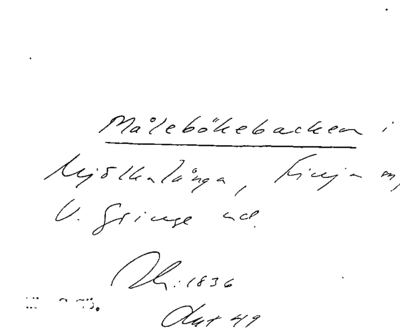 Målebökebacken i
Mjölkalånga, Finja sn,
V. Göinge hd.
Ak:1836
Akt 49